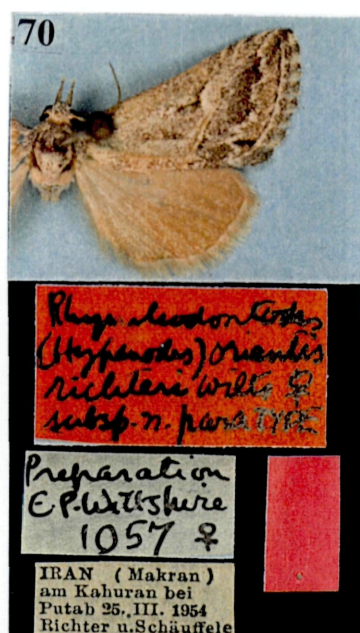 70
Rhynchodontodes
(Hypenodes) orientis
richteri Wilts ♀
subsp. n. paraTYPE
Preparation
E.P. Wiltshire
1057 ♀
IRAN (Makran)
am Kahuran bei
Putab 25. III. 1954
Richter u. Schäuffele